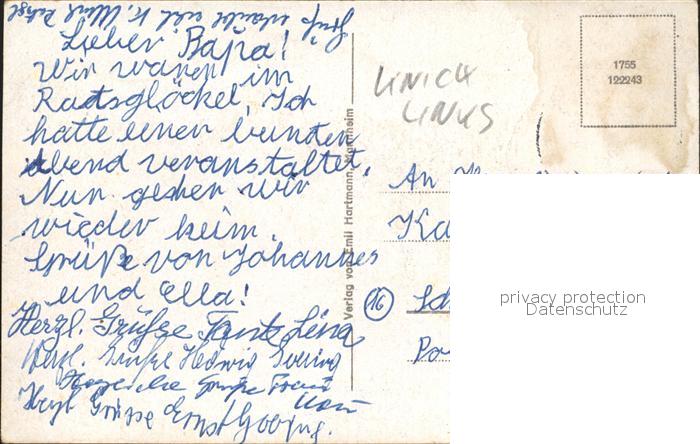 Lieber Papa!
Wir waren im
Ratsglöckel, Ich
hatte einen bunten
Abend veranstaltet.
Nun gehen wir
wieder heim.
Grüße von Johannes
und Ella!
Herzl. Grüße Tante Lina
Herzl. Grüße Hedwig
Herzliche Grüße
Herzl Grüsse Ernst
Verlag von Emil Hartmann, Mannheim
LINICH
LINKS
1755
122243
An
Ka
16
Po
privacy protection
Datenschutz